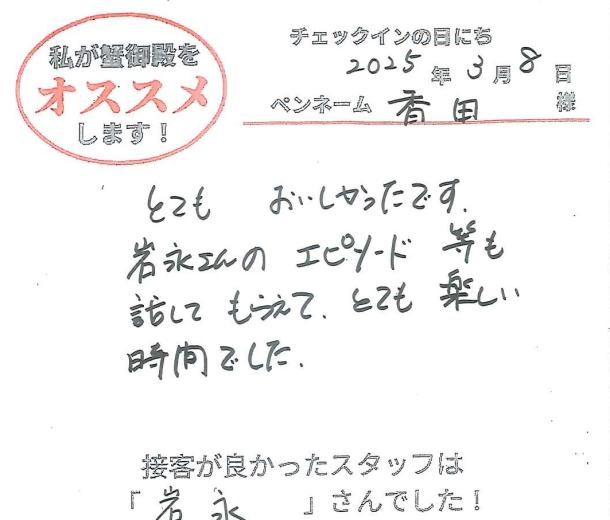 私が蟹御殿を
オススメ
します！
チェックインの日にち
2025年3月8日
ペンネーム 香田 様
とても おいしかったです.
岩永さんの エピソード 等も
話して もらえて. とても 楽しい
時間でした.
接客が良かったスタッフは
「岩永 」さんでした！